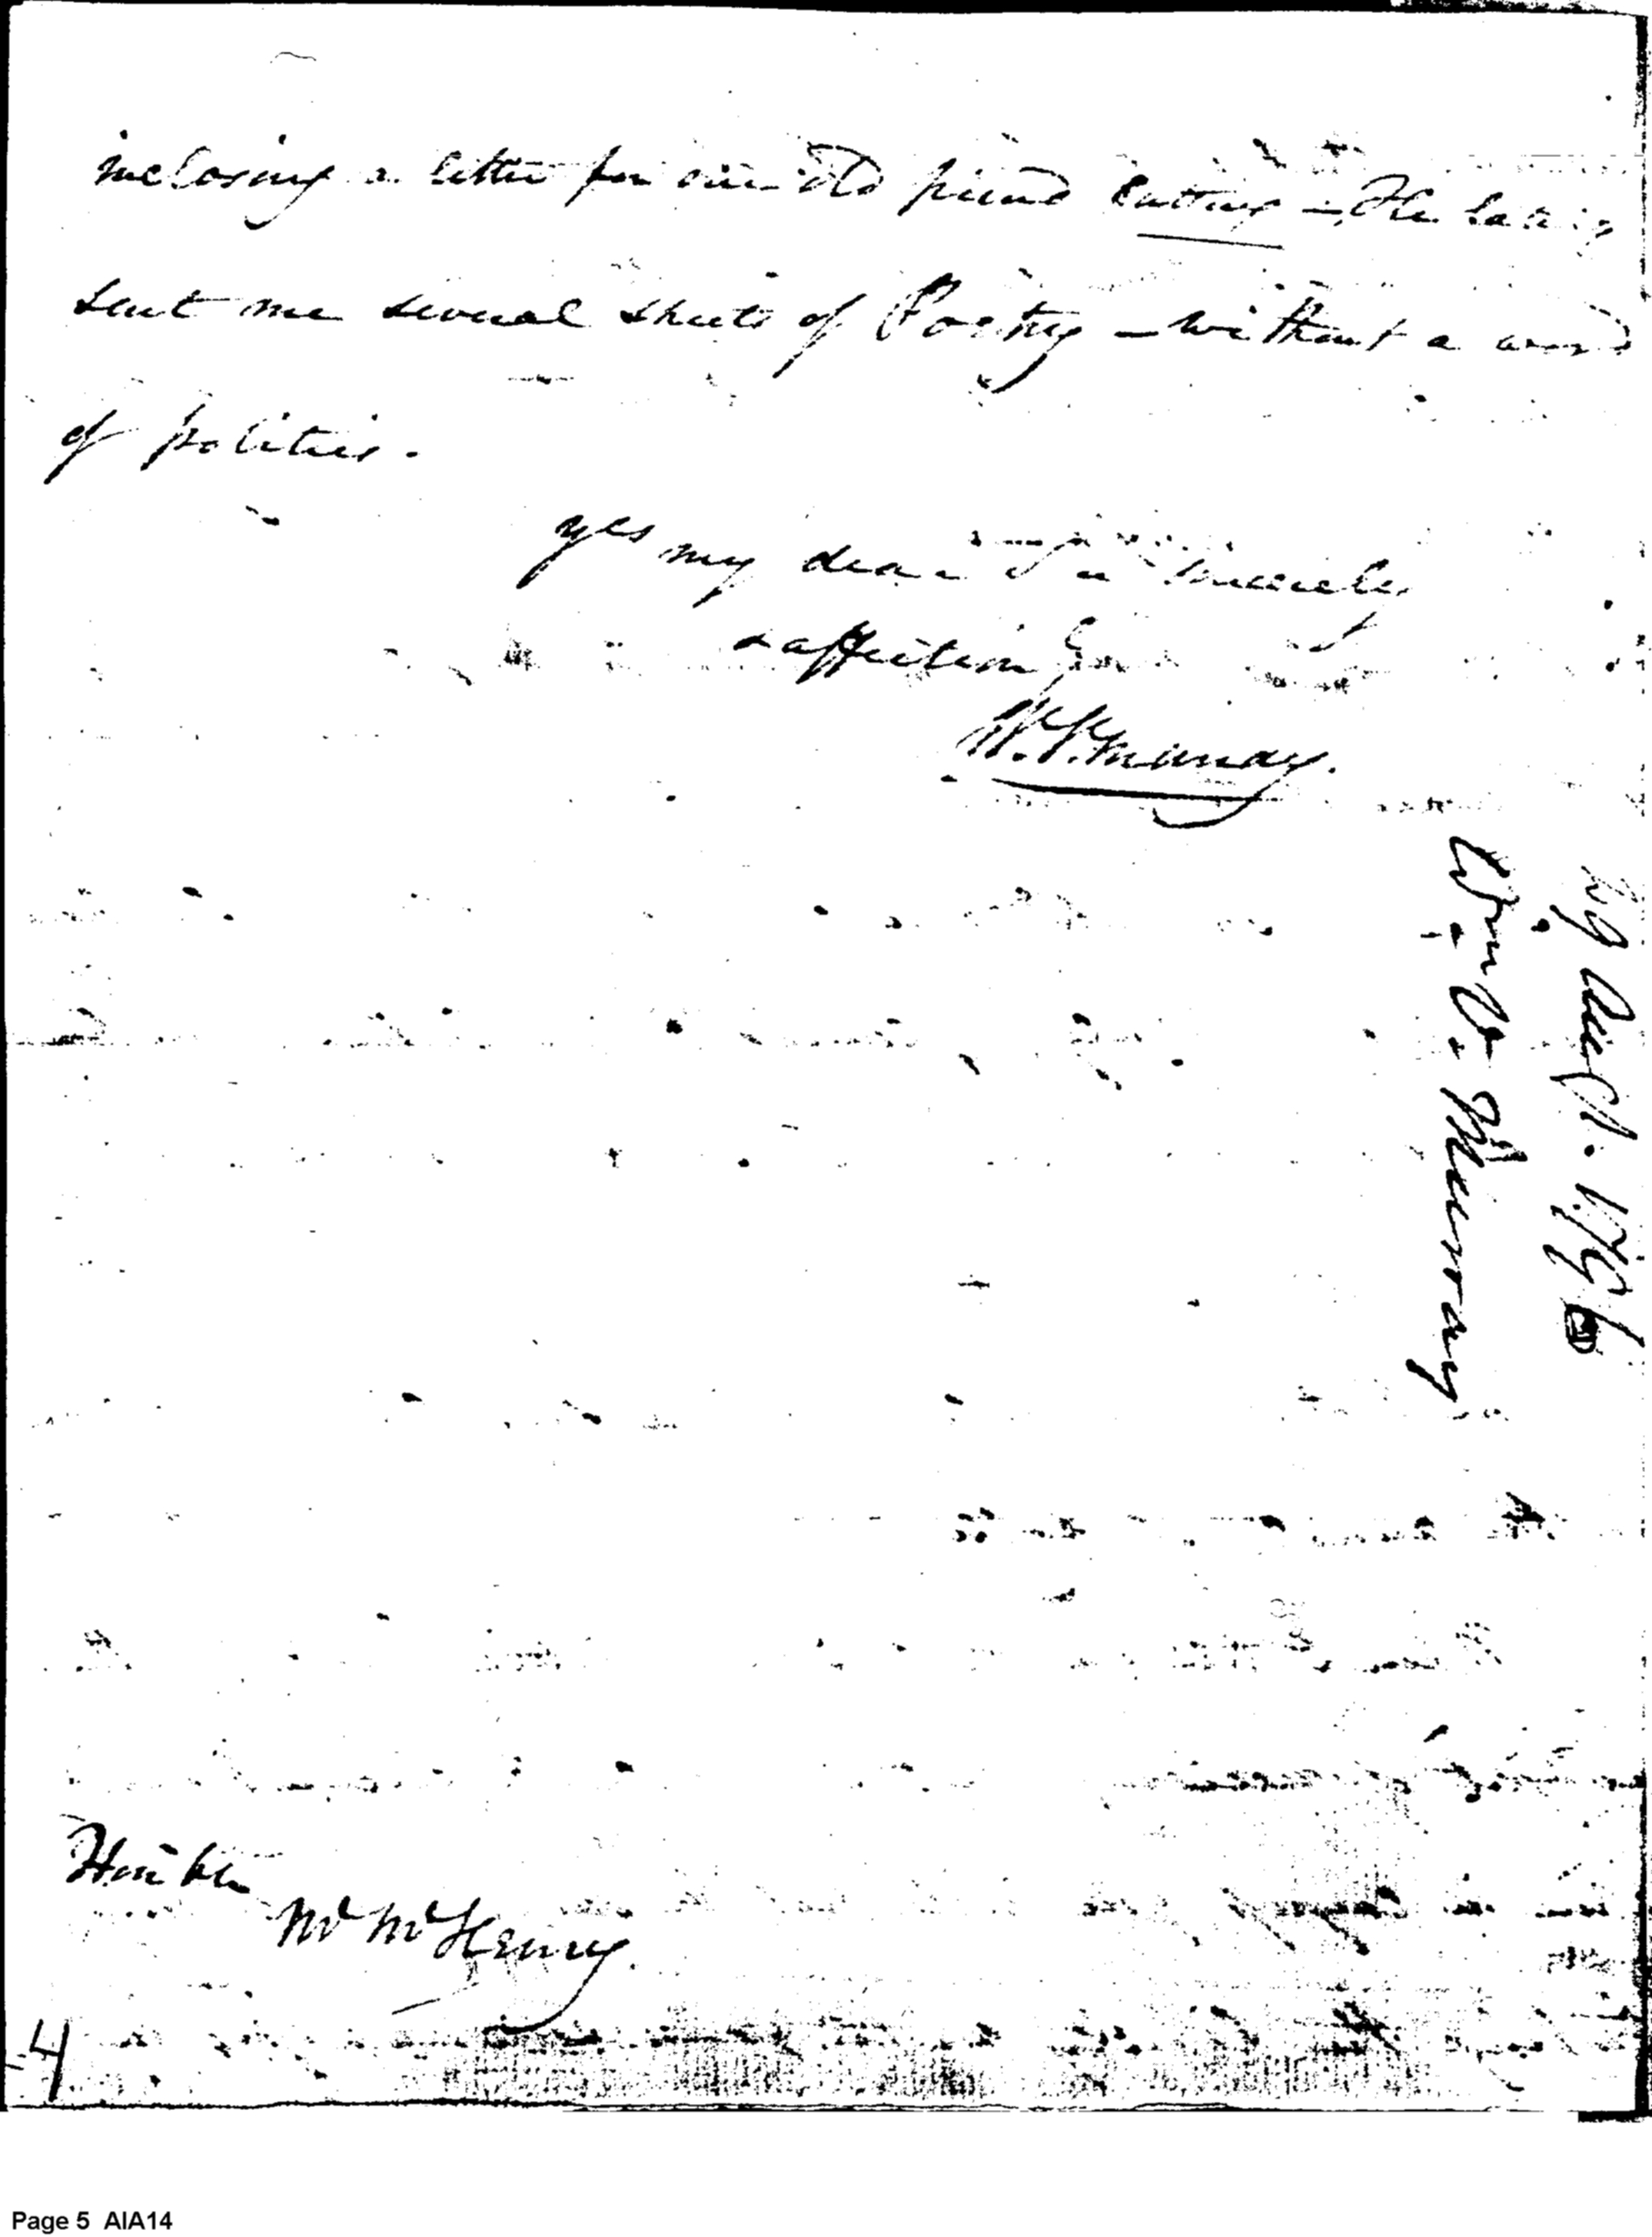 inclosing a letter for our old friend
sent me several sheets of Poetry – without a word
of politics.
yrs my dear Sir sincerely
& affection
W. V. Murray.
29 Augst. 1796
Wm. V. Murray
Honble
Mr McHenry.
4
Page 5 AIA14